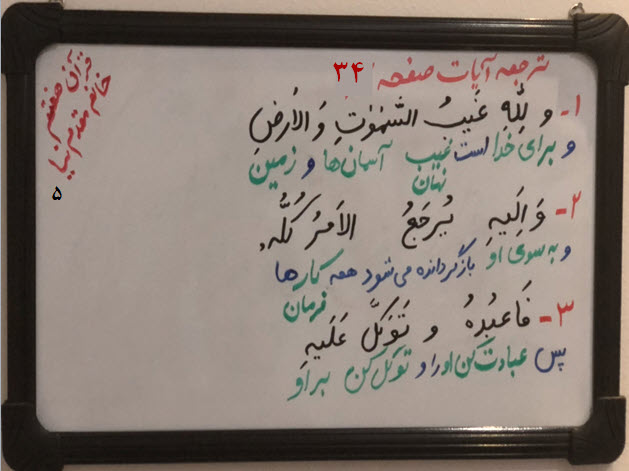 ترجمه آیات صفحه ۳۴
قرآن هفتم
خانم مقدم نیا
۵
۱- و لِلّٰهِ غَیبُ السَّمٰوٰتِ وَ الاَرضِ
و برای خدا است غیب آسمان‌ها و زمین
نهان
۲- وَ اِلَیهِ یُرجَعُ الاَمرُ کُلُّهُ
و به سوی او بازگردانده می‌شود همه کارها
فرمان
۳- فَاعبُدهُ و تَوَکَّل عَلَیهِ
پس عبادت کن او را و توکل کن بر او